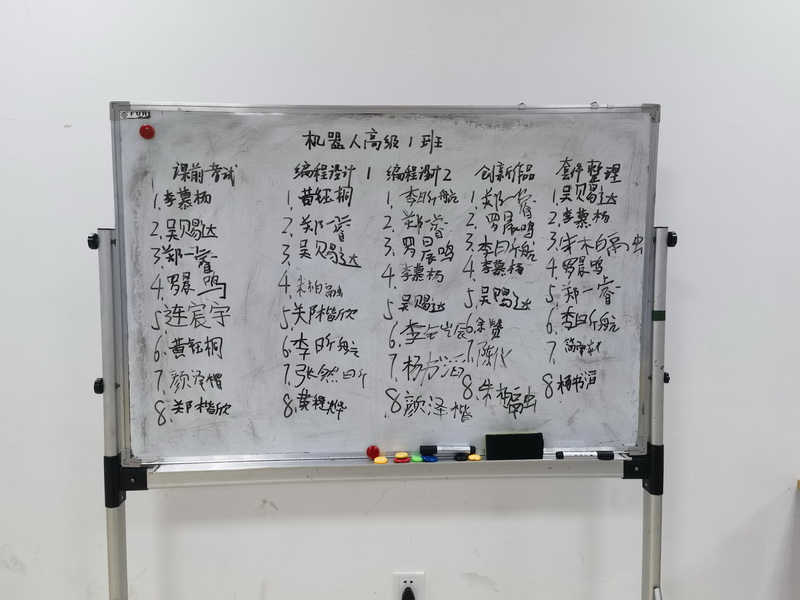 机器人高级1班
课前考试
1.李慕杨
2.吴赐达
3.郑一睿
4.罗晨鸣
5.连宸宇
6.黄钰桐
7.颜泽楷
8.郑楷欣
编程设计1
1.黄钰桐
2.郑一睿
3.吴赐达
4.朱柏融
5.郑楷欣
6.李昕航
7.张然昕
8.黄程烨
编程设计2
1.李昕航
2.郑一睿
3.罗晨鸣
4.李慕杨
5.吴赐达
6.李
7.杨书滔
8.颜泽楷
创新作品
1.郑一睿
2.罗晨鸣
3.李昕航
4.李慕杨
5.吴赐达
6.余赞
7.陈
8.朱柏融
套件整理
1.吴赐达
2.李慕杨
3.朱柏融
4.罗晨鸣
5.郑一睿
6.李昕航
7.
8.杨书滔